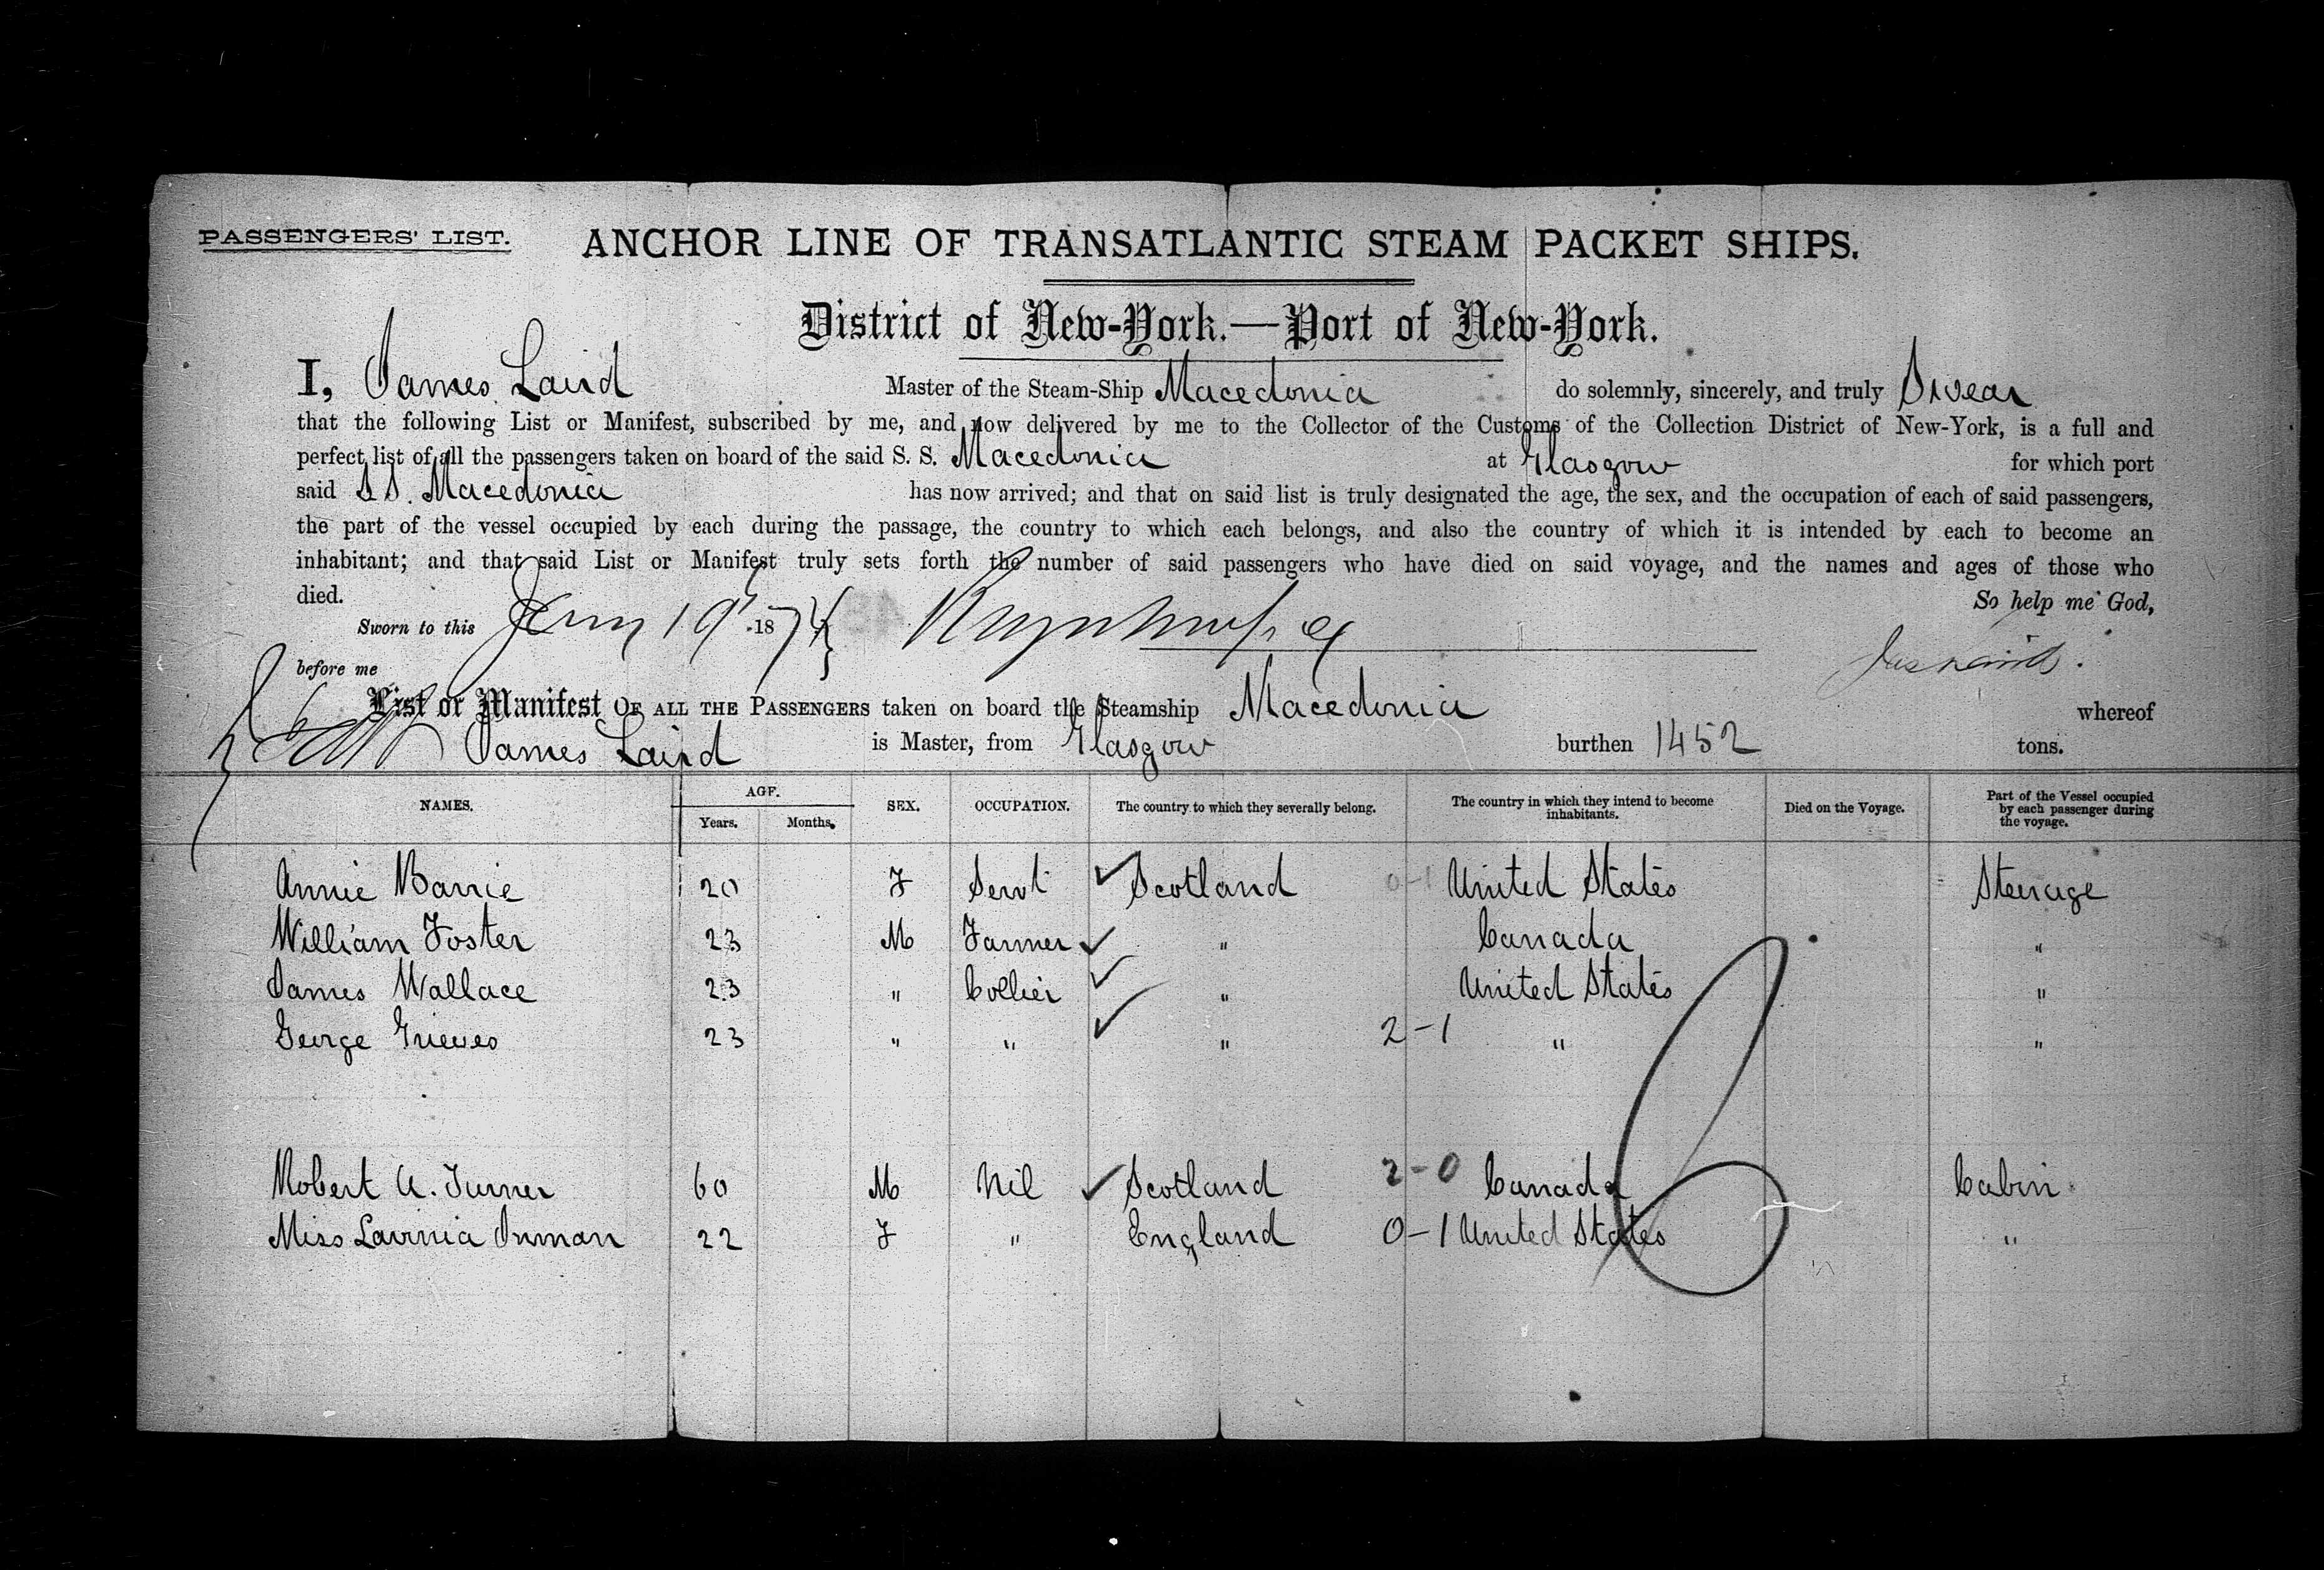 PASSENGERS' LIST.
ANCHOR LINE OF TRANSATLANTIC STEAM PACKET SHIPS.
District of New-York.—Port of New-York.
I, James Laird Master of the Steam-Ship Macedonia do solemnly, sincerely, and truly Swear
that the following List or Manifest, subscribed by me, and now delivered by me to the Collector of the Customs of the Collection District of New-York, is a full and
perfect list of all the passengers taken on board of the said S. S. Macedonia at Glasgow for which port
said S S. Macedonia has now arrived; and that on said list is truly designated the age, the sex, and the occupation of each of said passengers,
the part of the vessel occupied by each during the passage, the country to which each belongs, and also the country of which it is intended by each to become an
inhabitant; and that said List or Manifest truly sets forth the number of said passengers who have died on said voyage, and the names and ages of those who
died. So help me God,
Sworn to this 19 1874
before me Jas Laird.
List or Manifest OF ALL THE PASSENGERS taken on board the Steamship Macedonia whereof
James Laird is Master, from Glasgow burthen 1452 tons.
NAMES. AGE. Years. Months. SEX. OCCUPATION. The country to which they severally belong. The country in which they intend to become inhabitants. Died on the Voyage. Part of the Vessel occupied by each passenger during the voyage.
Annie Barrie 20 F Servt Scotland 0-1 United States Steerage
William Foster 23 M Farmer " Canada "
James Wallace 23 " Collier " United States "
George Grieves 23 " " " 2-1 " "
Robert A. Turner 60 M Nil Scotland 2-0 Canada Cabin
Miss Lavinia Inman 22 F " England 0-1 United States "
6